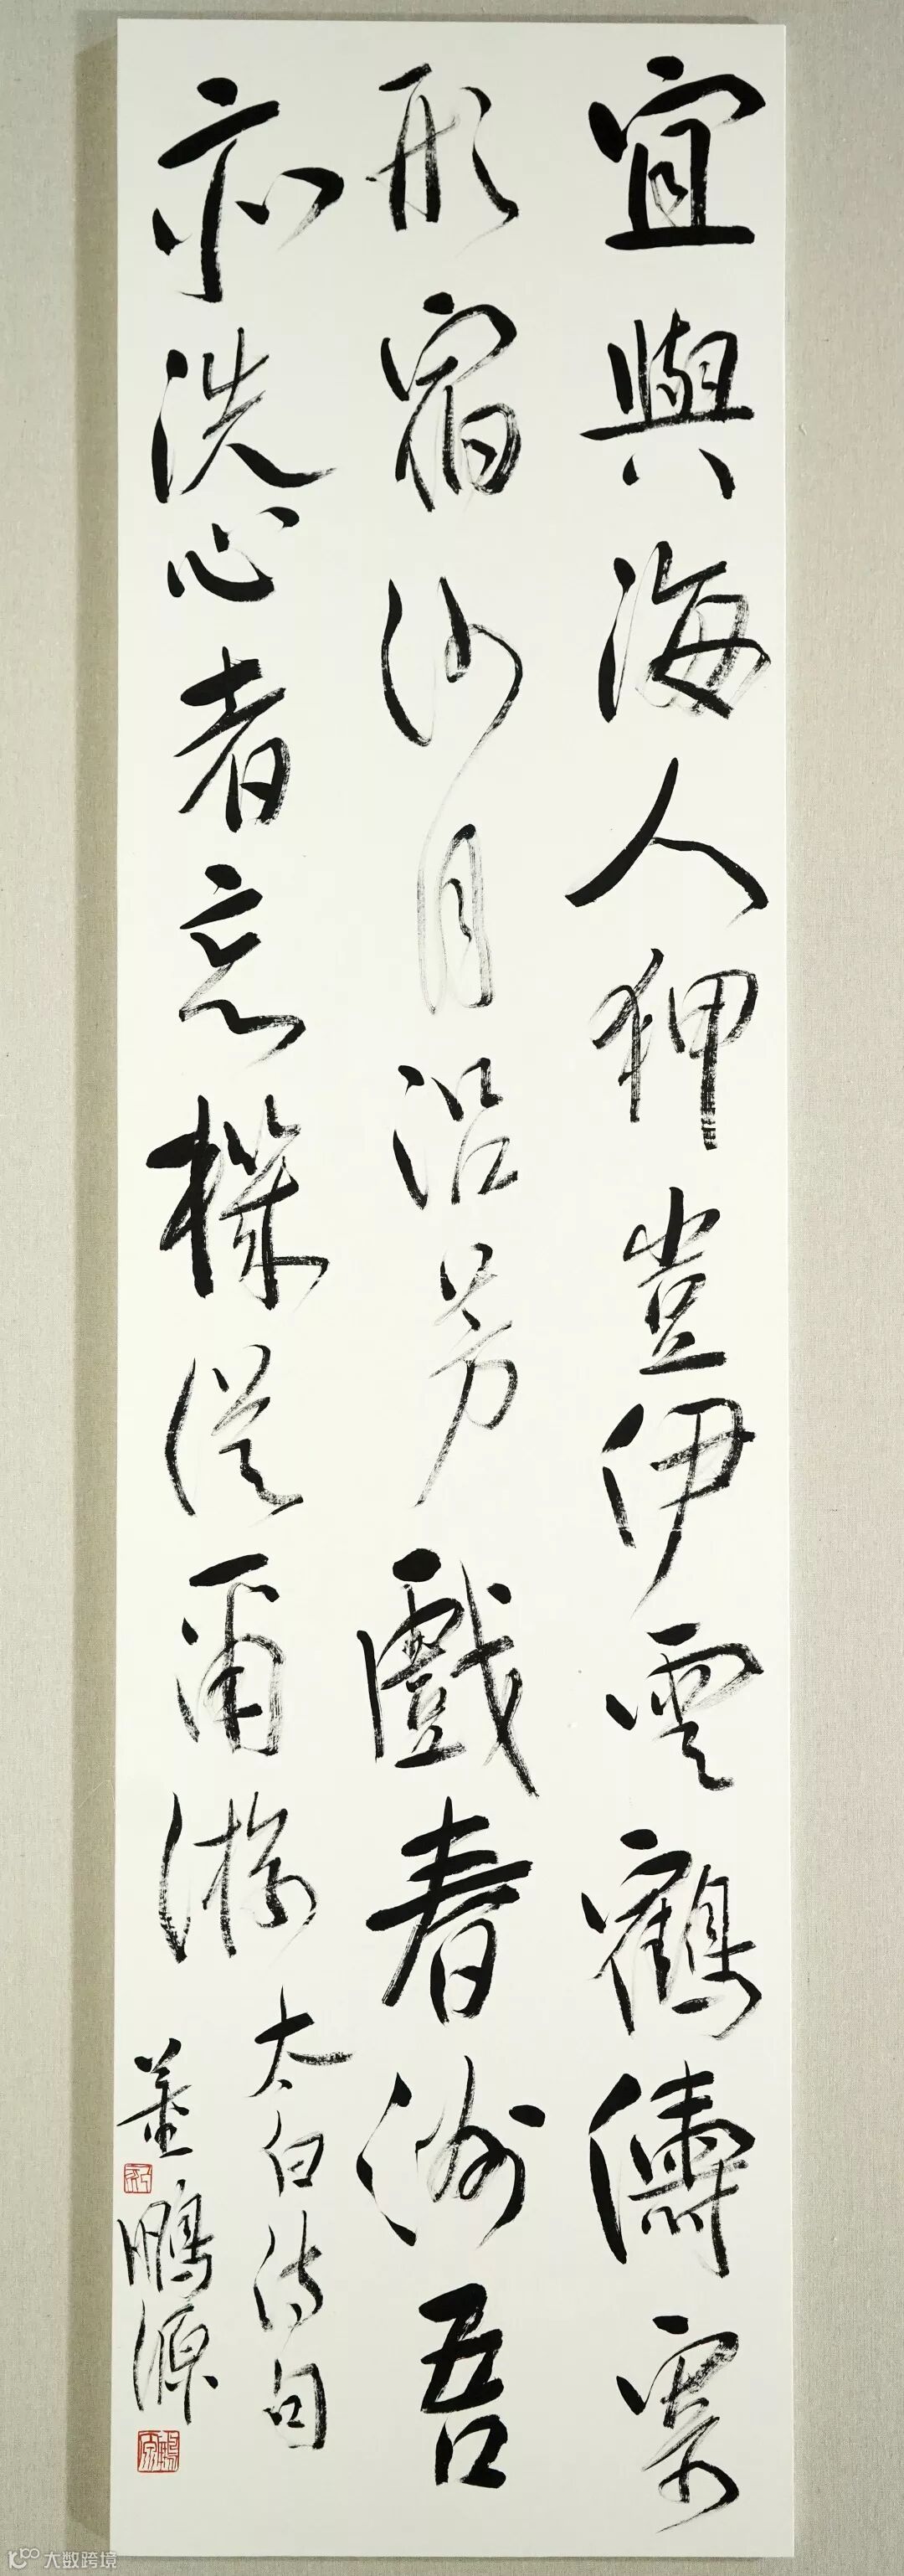 宜與海人狎豈伊雲鶴儔寄
形宿沙月沿芳戲春洲吾
亦洗心者忘機從爾游
太白詩句
董鵬源
大数跨境